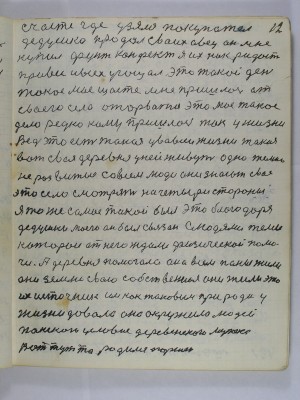 12
счасте где узяло покупател
дедушко продол своих авец ан мне
купил фунт канфект я их как радост
привез и всех угощал это такой ден
такое мае щасте мне пришлос от
своего села оторватся это мое такое
дело редко каму пришлос так у жизни
Вед это ест такая у вашей жизни такая
вот своя деревня у ней живут одно
не розвитые совсем люди они знают свая
это село смотрят на четыри стороны
я тоже самое такой был это благодаря
дедушки моего ан был связан с людями теми
которое от него ждали физической помо
чи. А деревня помогала она всем паны жили
они землю сваю собственная они жили это
их источник им как таковым природа у
жизни довала оно окружило людей
деревенского мужика
Вот тут та родился